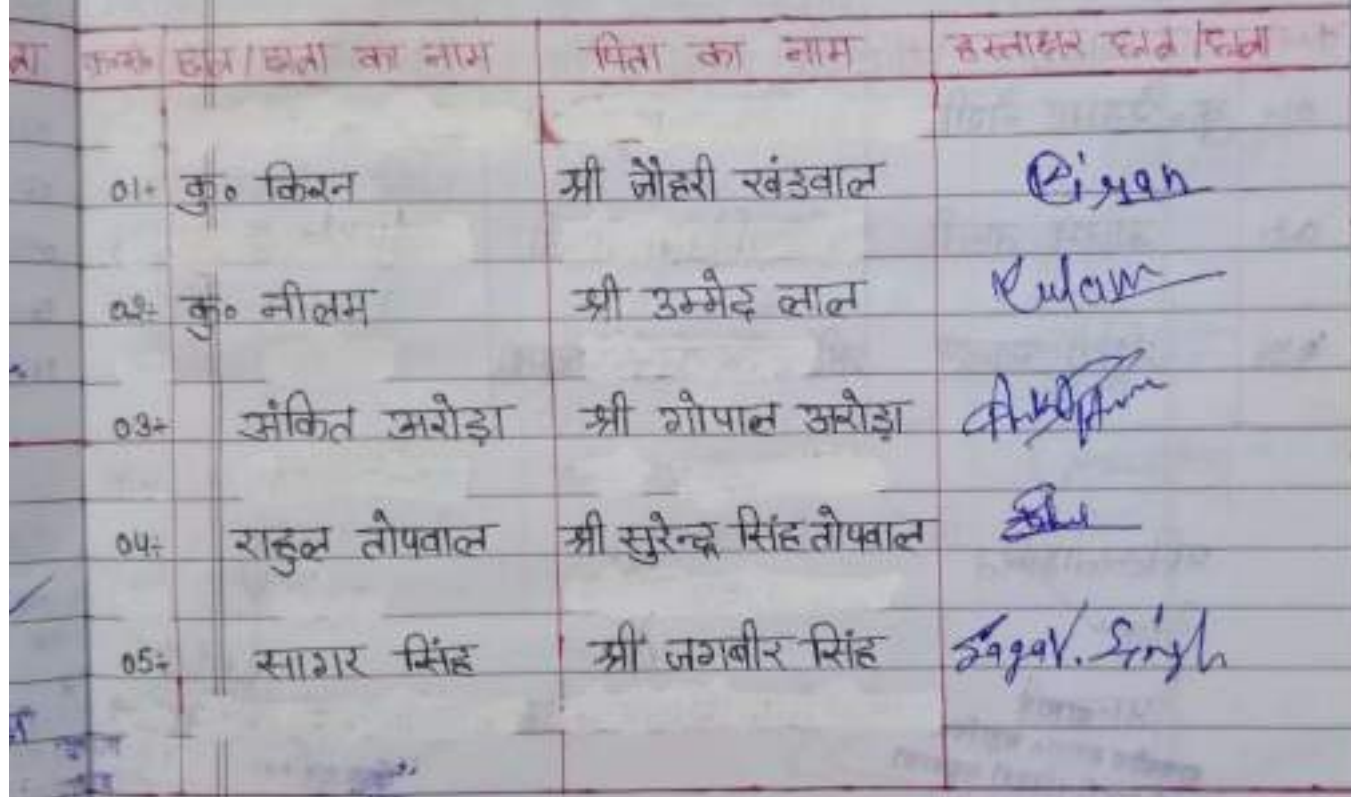 क्र०सं० छात्र/छात्रा का नाम पिता का नाम हस्ताक्षर छात्र/छात्रा
01÷ कु० किरन श्री जौहरी खंडवाल Kiran
02÷ कु० नीलम श्री उम्मेद लाल
03÷ अंकित अरोड़ा श्री गोपाल अरोड़ा
04÷ राहुल तोपवाल श्री सुरेन्द्र सिंह तोपवाल
05÷ सागर सिंह श्री जगबीर सिंह Sagar. Singh